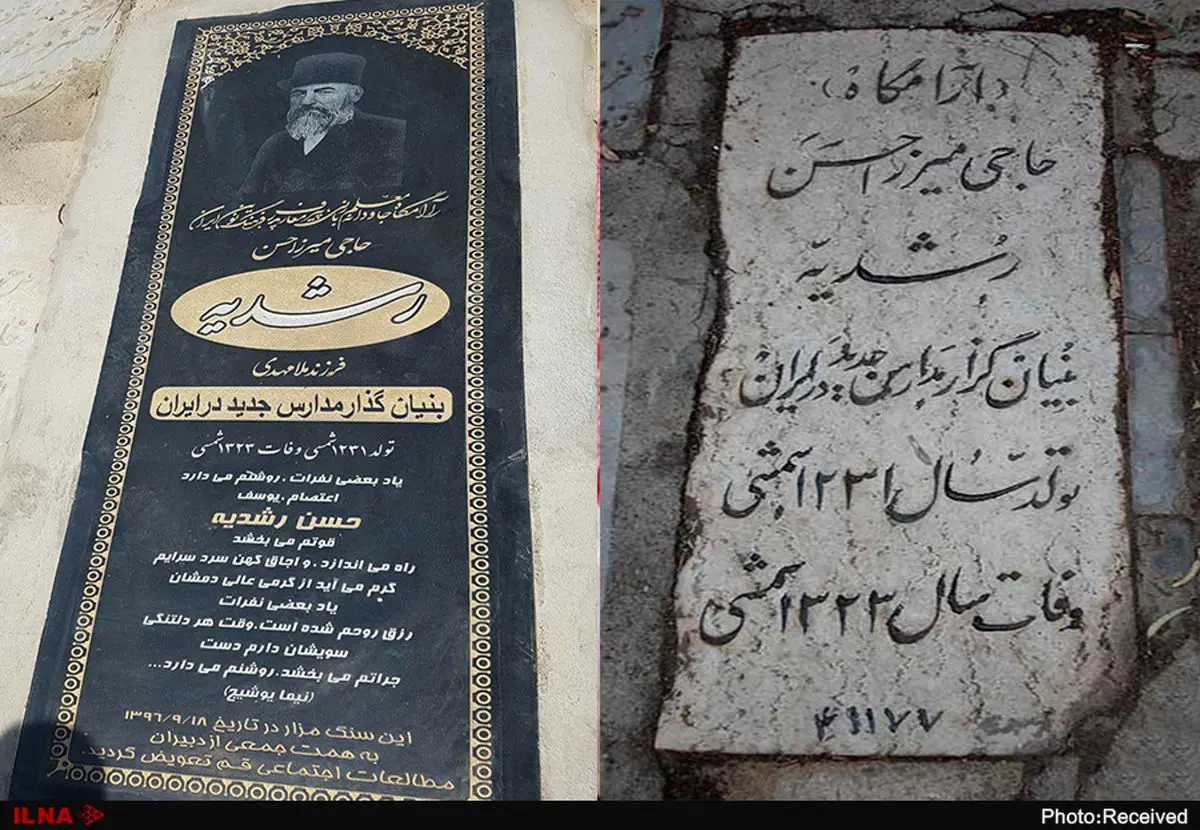 حاجی میرزا حسن
رشدیه
فرزند ملا مهدی
بنیان گذار مدارس جدید در ایران
تولد ۱۲۳۱ شمسی وفات ۱۳۲۳ شمسی
یاد بعضی نفرات . روشنم می دارد
اعتصام . یوسف
حسن رشدیه
قوتم می بخشد
راه می اندازد . و اجاق کهن سرد سرایم
گرم می آید از گرمی عالی دمشان
یاد بعضی نفرات
رزق روحم شده است . وقت هر دلتنگی
سویشان دارم دست
جراتم می بخشد . روشنم می دارد...
(نیما یوشیج)
این سنگ مزار در تاریخ ۱۳۹۶/۹/۱۸
به همت جمعی از دبیران
مطالعات اجتماعی قم تعویض گردید.
(آرامگاه)
حاجی میرزا حسن
رُشدیّه
بُنیان گزار مدارس جدید در ایران
تولد سال ۱۲۳۱ شمسی
وفات سال ۱۳۲۳ شمسی
۴۱۱۷۷
ILNA
Photo:Received